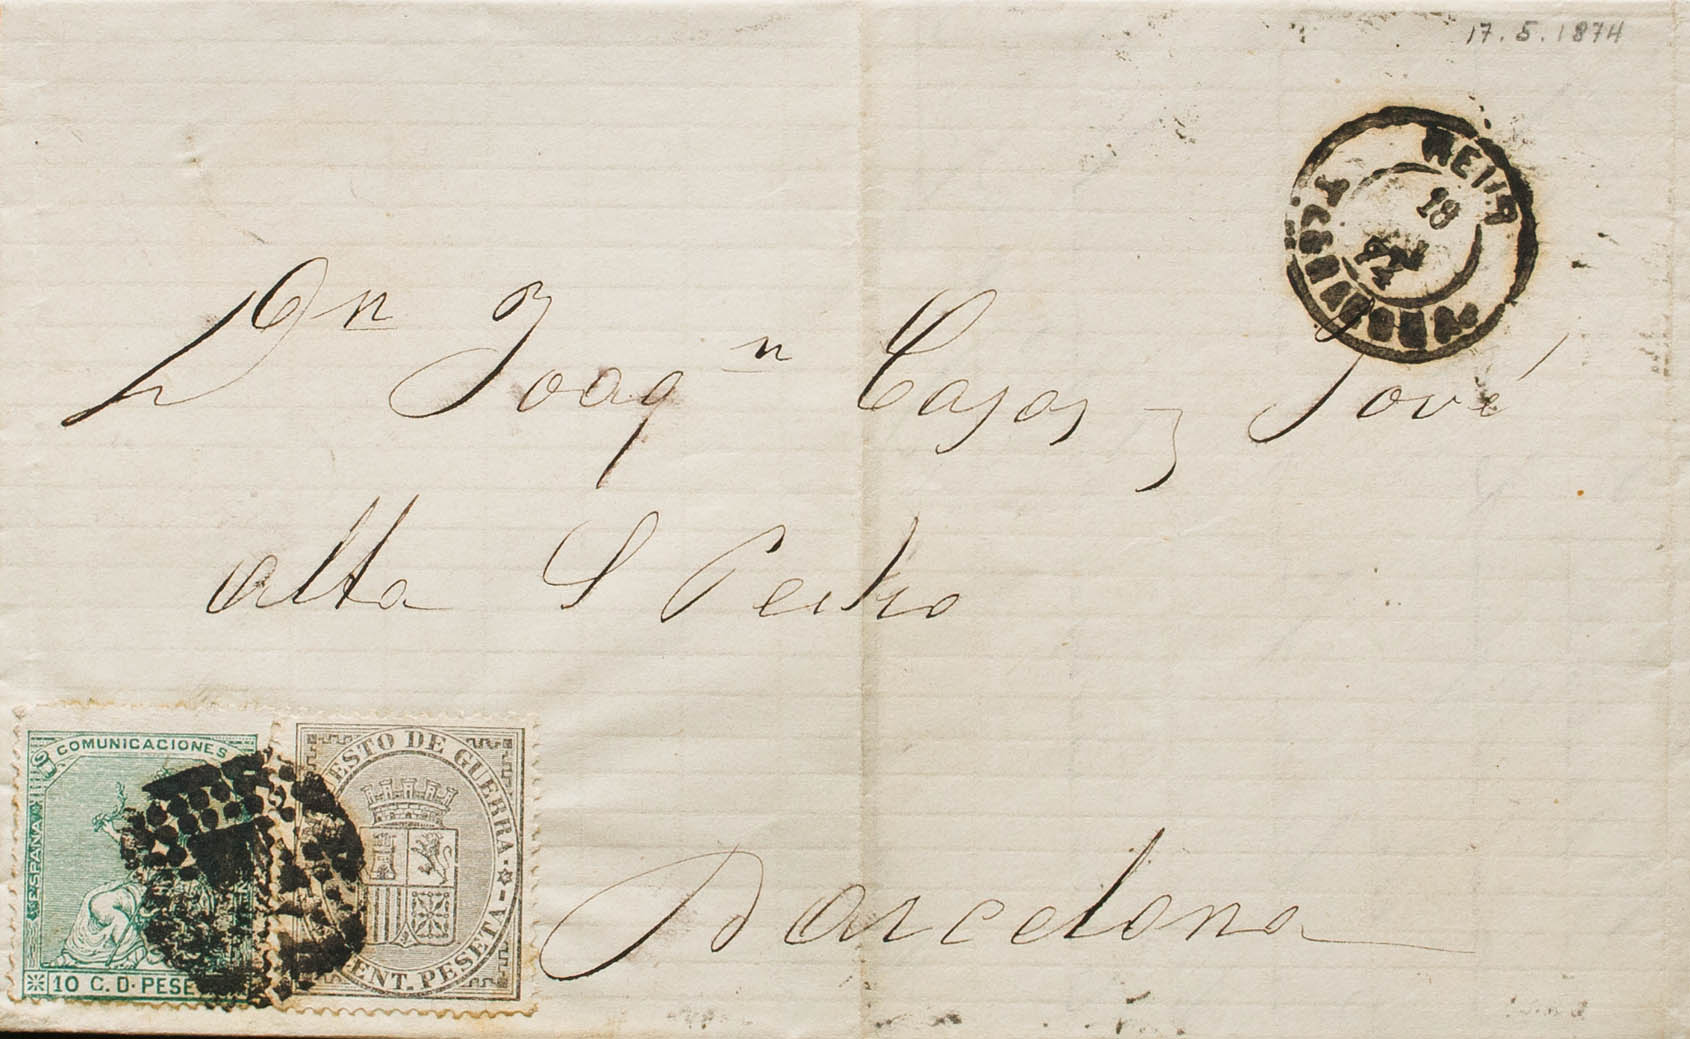 17.5.1874
REUS
18
74
TARRAGONA
Dn Joaqn Casas y Jové
alta S Pedro
Barcelona
COMUNICACIONES
ESPAÑA
10 C. D. PESE
ESTO DE GUERRA
ENT. PESETA